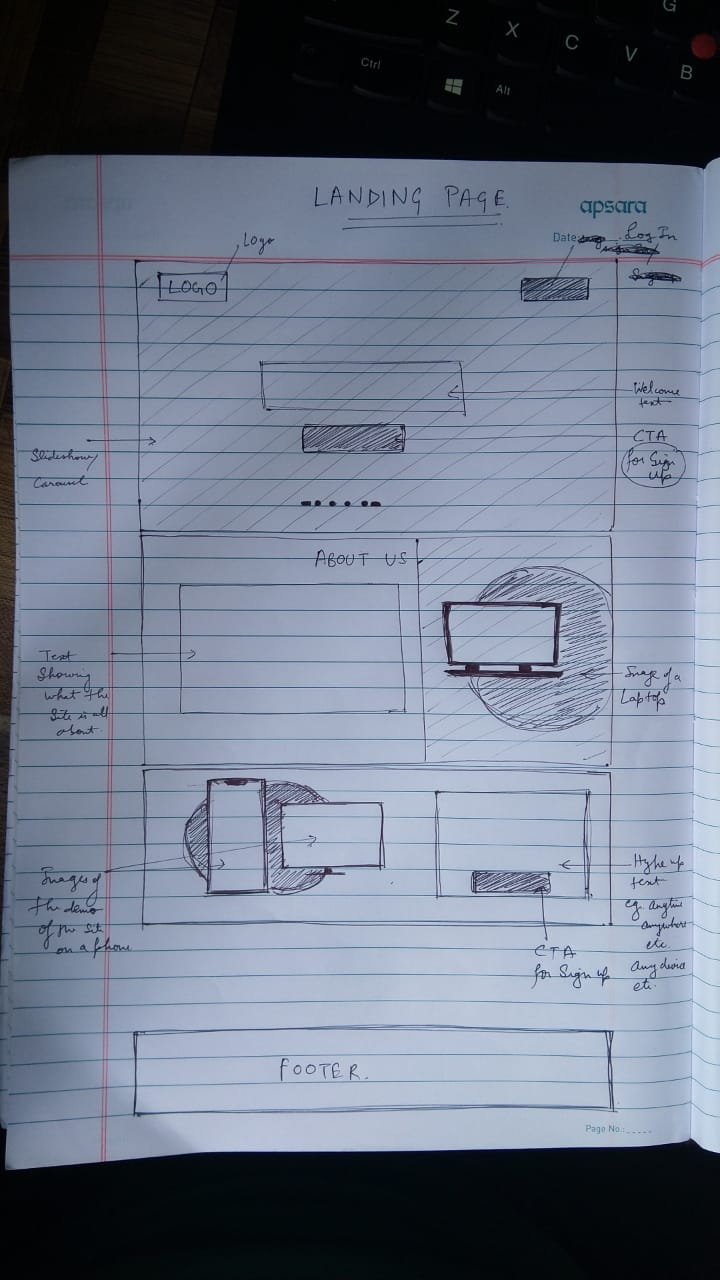 G
Z
X
C
V
B
Ctrl
Alt
LANDING PAGE.
apsara
Date:
Log In
Logo
LOGO
Welcome
text
CTA
for Sign
up
Slideshow/
Carousel
ABOUT US
Text
Showing
what the
Site is all
about.
Image of a
Laptop
Images of
the demo
of the site
on a phone
Hype up
text
eg. anytime
anywhere
etc.
any device
etc.
CTA
for Sign up
FOOTER.
Page No.: